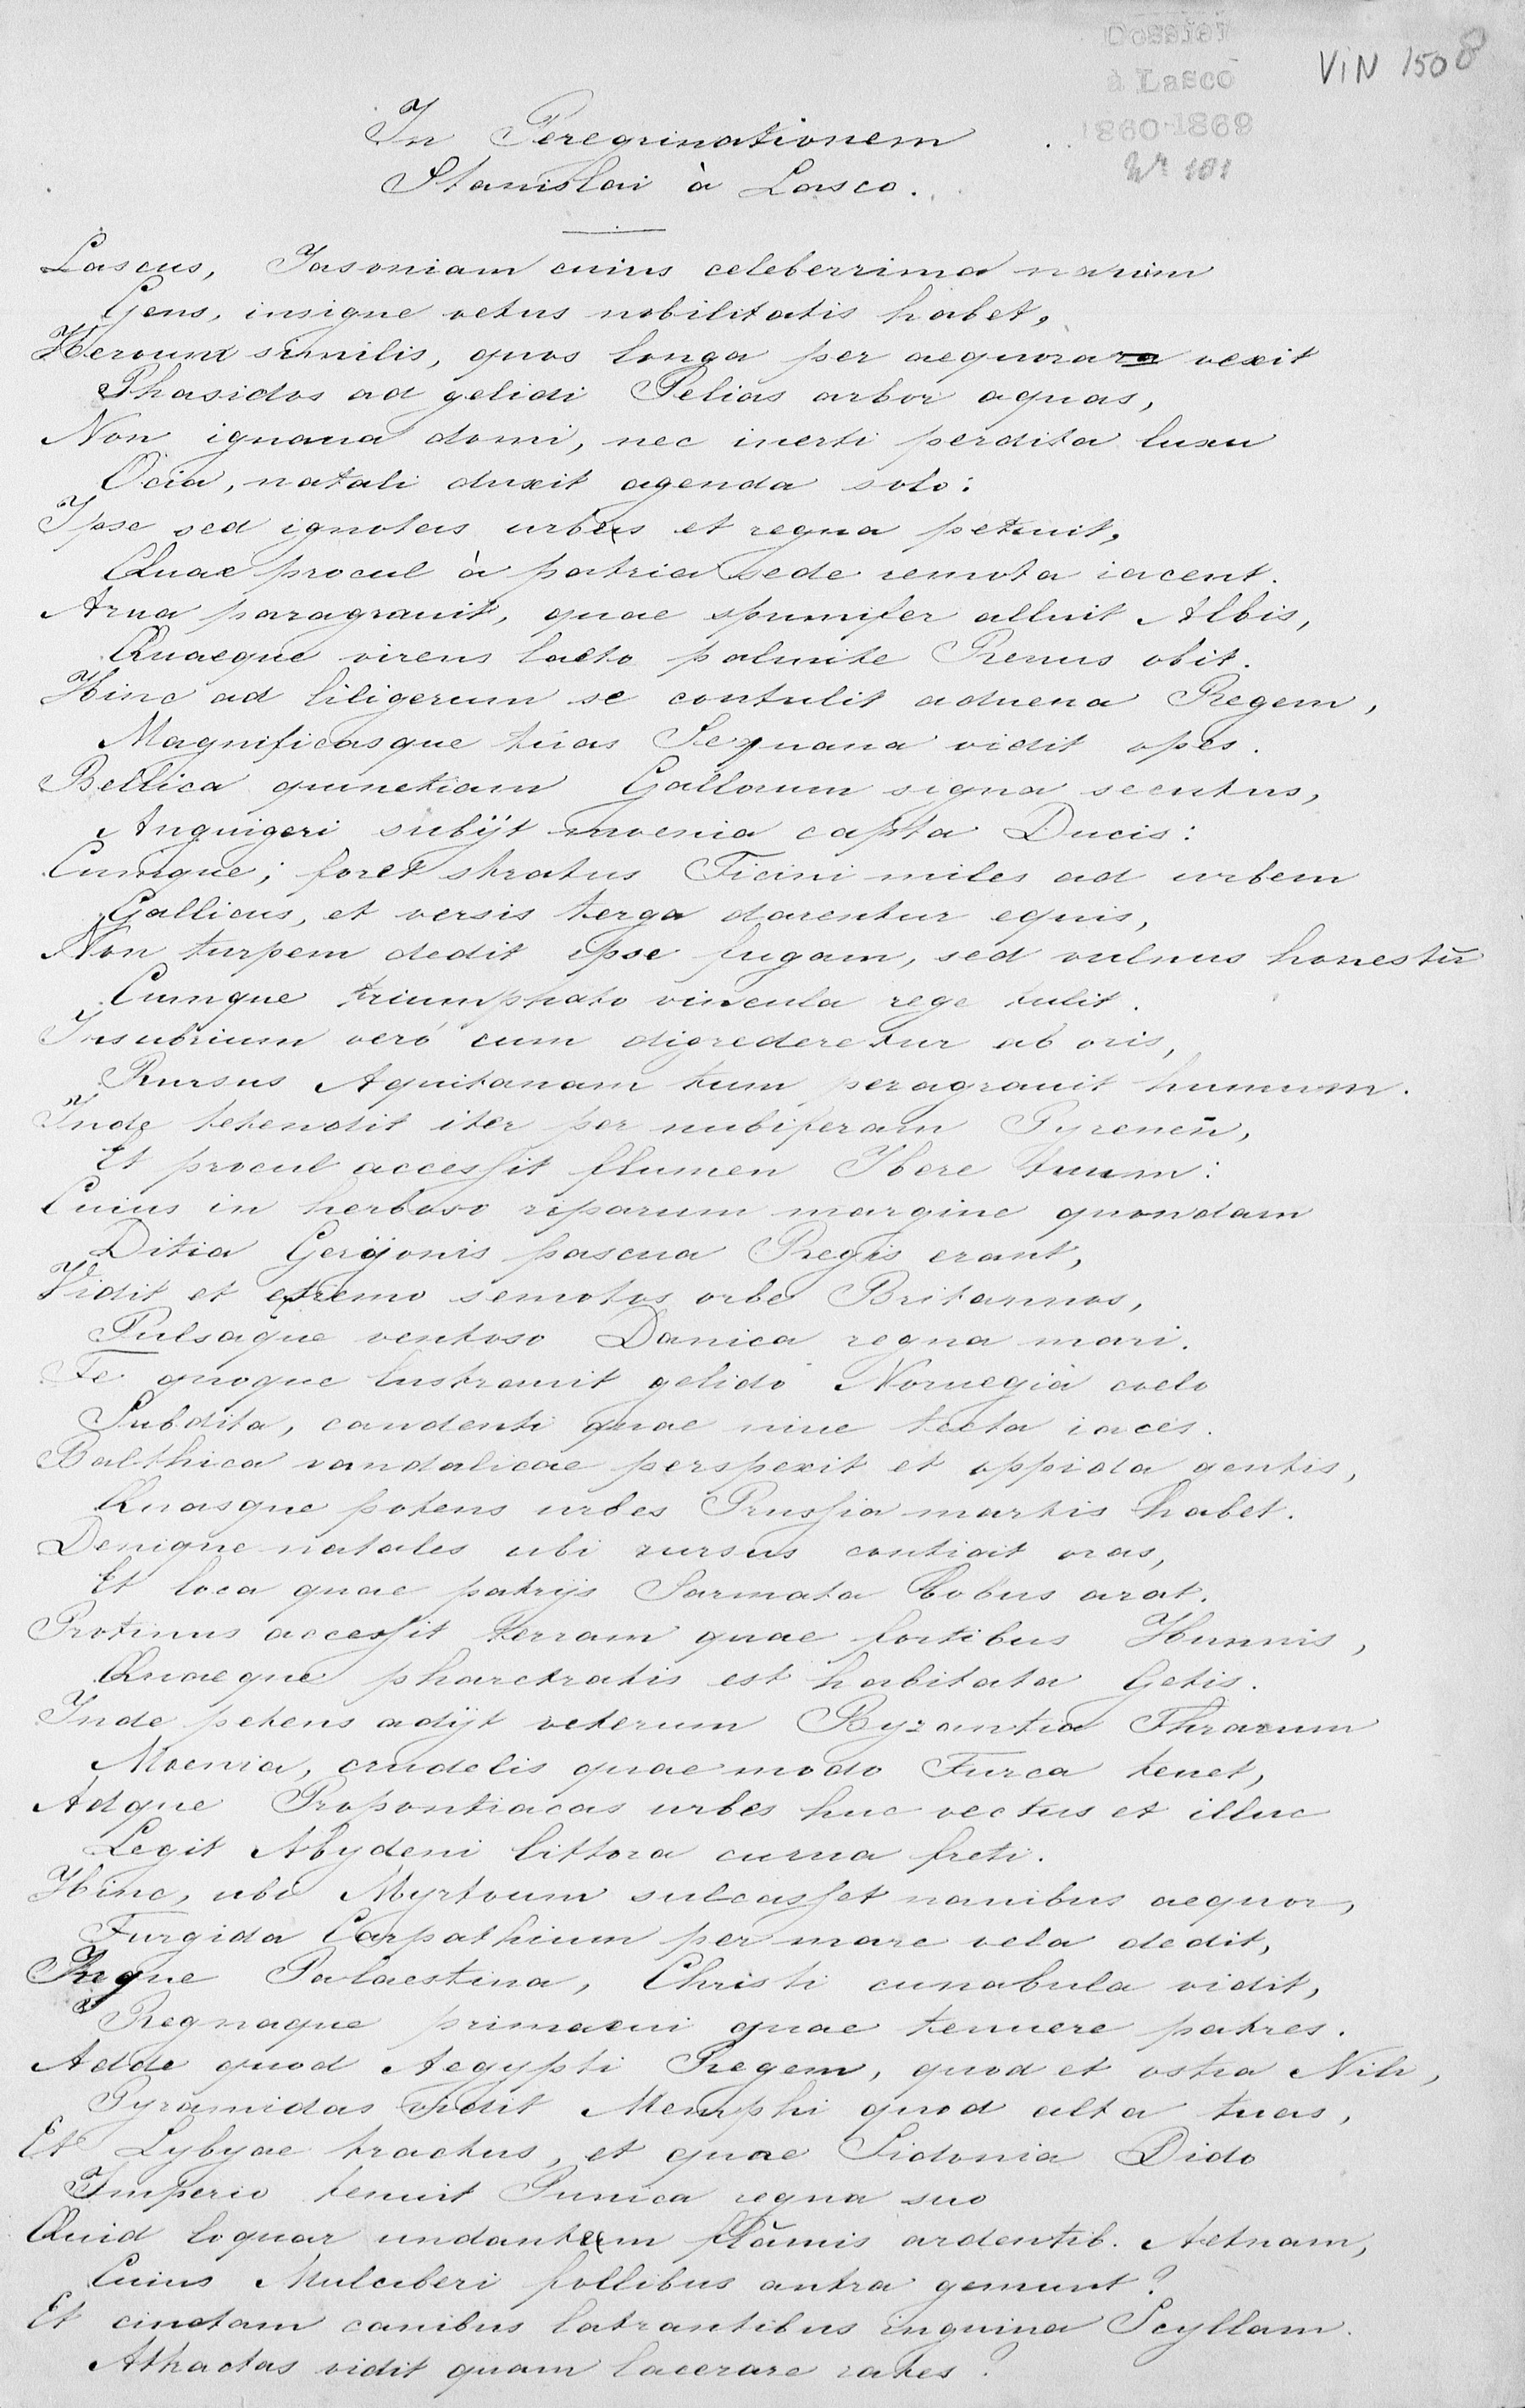 Dossier
à Lasco
1860-1869
Nr 101
VIN 1508
In Peregrinationem
Stanislai à Lasco.
Lascus, Iasoniam cuius celeberrima nauim
Gens, insigne vetus nobilitatis habet,
Heroum similis, quos longa per aequora vexit
Phasidos ad gelidi Pelias arbor aquas,
Non ignaua domi, nec inerti perdita luxu
Ocia, natali duxit agenda solo:
Ipse sed ignotas urbes et regna petiuit,
Quae procul à patria sede remota iacent.
Arua paragrauit, quae spumifer alluit Albis,
Quaeque virens laeto palmite Renus obit.
Hinc ad liligerum se contulit aduena Regem,
Magnificasque tuas Sequana vidit opes.
Bellica quinetiam Gallorum signa secutus,
Anguigeri subijt moenia capta Ducis:
Cumque; foret stratus Ticini miles ad urbem
Gallicus, et versis terga darentur equis,
Non turpem dedit ipse fugam, sed vulnus honestū
Cumque triumphato vincula rege tulit.
Insubrium veró cum digrederetur ab oris,
Rursus Aquitanam tum peragrauit humum.
Inde tetendit iter per nubiferam Pyrenen̄,
Et procul accessit flumen Ibere tuum:
Cuius in herboso riparum margine quondam
Ditia Gerÿonis pascua Regis erant,
Vidit et extremo semotos orbe Britannos,
Pulsaque ventoso Danica regna mari.
Te quoque lustrauit gelido Noruegia coelo
Subdita, candenti quae niue tecta iaces.
Balthica vandalicae perspexit et oppida gentis,
Quasque potens urbes Prussia martis habet.
Denique natales ubi rursus contigit oras,
Et loca quae patrijs Sarmata bobus arat.
Protinus accessit terram quae fortibus Hunnis,
Quaeque pharetratis est habitata Getis.
Inde petens adijt veterum Byzantia Thracum
Moenia, crudelis quae modo Turca tenet,
Adque Propontiacas urbes huc vectus et illuc
Legit Abydeni littora curua freti.
Hinc, ubi Myrtoum sulcasset nauibus aequor,
Turgida Carpathium per mare vela dedit,
Inque Palaestina, Christi cunabula vidit,
Regnaque primaeui quae tenuere patres.
Adde quod Aegypti Regem, quod et ostia Nili,
Pyramidas vidit Memphi quod alta tuas,
Et Lybyae tractus, et quae Sidonia Dido
Imperio tenuit Punica regna suo
Quid loquar undantem flāmis ardentib. Aetnam,
Cuius Mulciberi follibus antra gemunt?
Et cinctam canibus latrantibus inguina Scyllam.
Athactas vidit quam lacerare rates?